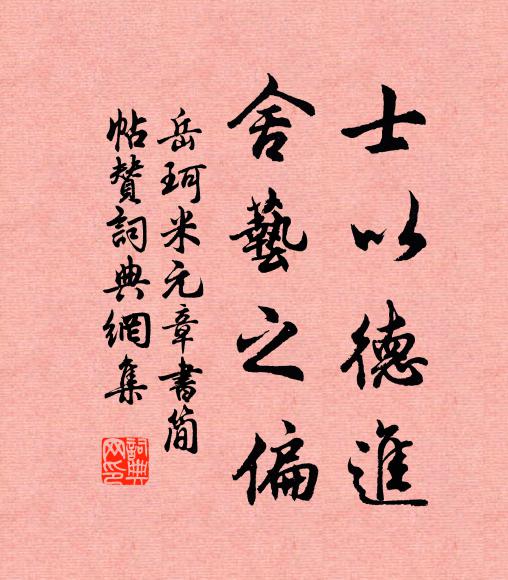 士以德進
舍藝之偏
岳珂米元章書簡
帖贊詞典網集
詞典網印